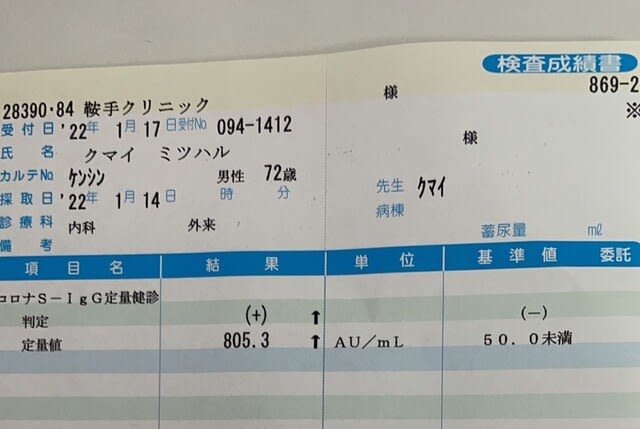 検査成績書
869-2
様
※
28390・84 鞍手クリニック
受付日 '22年 1月 17日 受付No 094-1412
様
氏名 クマイ ミツハル
カルテNo ケンシン 男性 72歳
先生 クマイ
採取日 '22年 1月 14日 時 分
病棟
診療科 内科 外来
蓄尿量 mℓ
備考
項目名 結果 単位 基準値 委託
コロナS-IgG定量健診
判定 (+) ↑ (-)
定量値 805.3 ↑ AU/mL 50.0未満